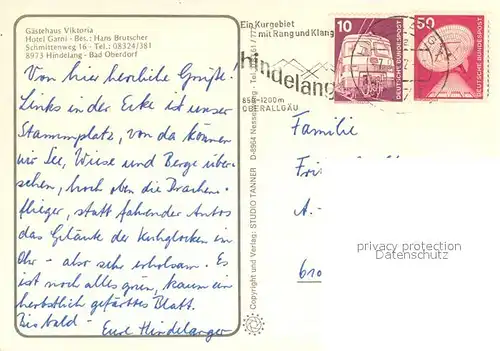 Gästehaus Viktoria
Hotel Garni · Bes.: Hans Brutscher
Schmittenweg 16 · Tel.: 08324/381
8973 Hindelang - Bad Oberdorf
Von hier herzliche Grüße.
Links in der Ecke ist unser
Stammplatz, von da können
wir See, Wiese und Berge über-
sehen, hoch oben die Drachen-
flieger, statt fahrender Autos
das Geläute der Kuhglocken im
Ohr - also sehr erholsam. Es
ist noch alles grün, kaum ein
herbstlich gefärbtes Blatt.
Bis bald - Eure Hindelanger
Copyright und Verlag: STUDIO TANNER D-8964 Nesselwang
Ein Kurgebiet
mit Rang und Klang
hindelang
850-1200m
OBERALLGÄU
10
DEUTSCHE BUNDESPOST
50
DEUTSCHE BUNDESPOST
Familie
A.-
610
privacy protection
Datenschutz